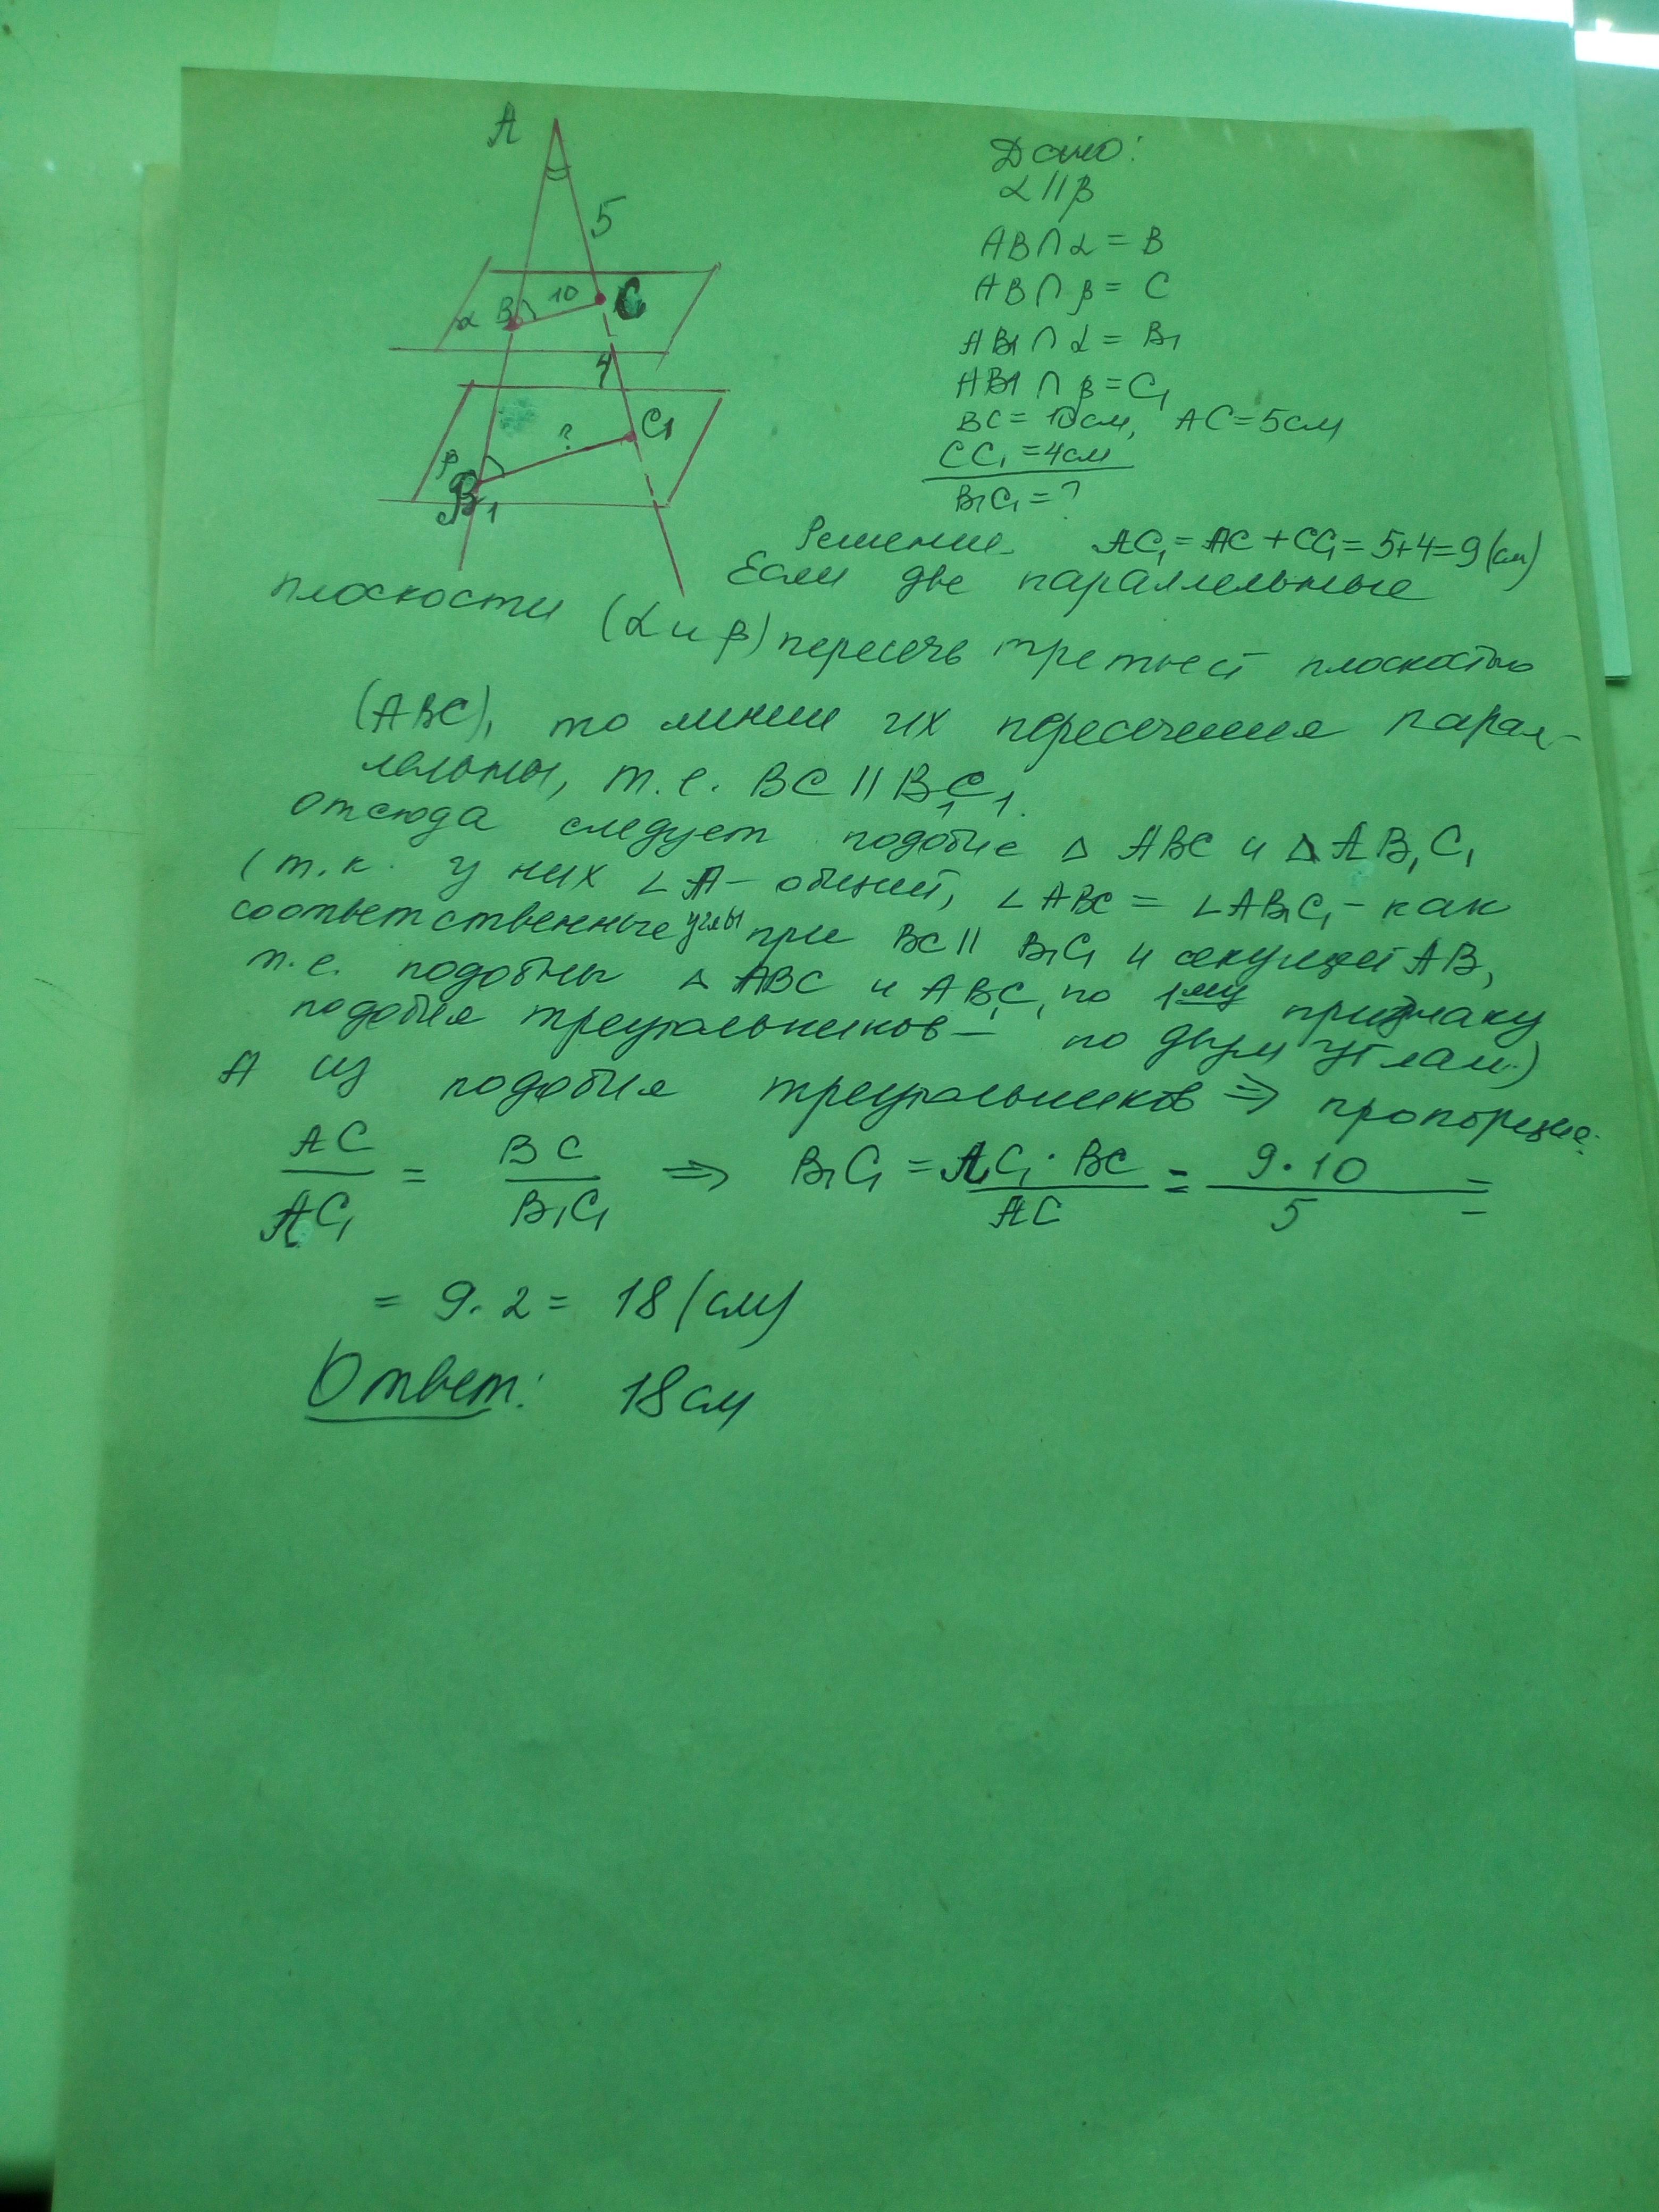 A
5
10
B
C
α
4
?
C₁
β
B₁
Дано:
α || β
AB ∩ α = B
AB ∩ β = C
AB₁ ∩ α = B₁
AB₁ ∩ β = C₁
BC = 10см, AC = 5см
CC₁ = 4см
B₁C₁ = ?
Решение. AC₁ = AC + CC₁ = 5+4=9 (см)
Если две параллельные
плоскости (α и β) пересечь третьей плоскостью
(ABC), то линии их пересечения парал-
лельны, т.е. BC || B₁C₁.
отсюда следует подобие △ ABC и △ AB₁C₁
(т.к. у них ∠A - общий, ∠ABC = ∠AB₁C₁ - как
соответственные углы при BC || B₁C₁ и секущей AB,
т.е. подобны △ ABC и AB₁C₁ по 1му признаку
подобия треугольников - по двум углам)
А из подобия треугольников ⇒ пропорция:
AC/AC₁ = BC/B₁C₁ ⇒ B₁C₁ = AC₁ · BC/AC = 9 · 10/5 =
= 9 · 2 = 18 (см)
Ответ: 18 см